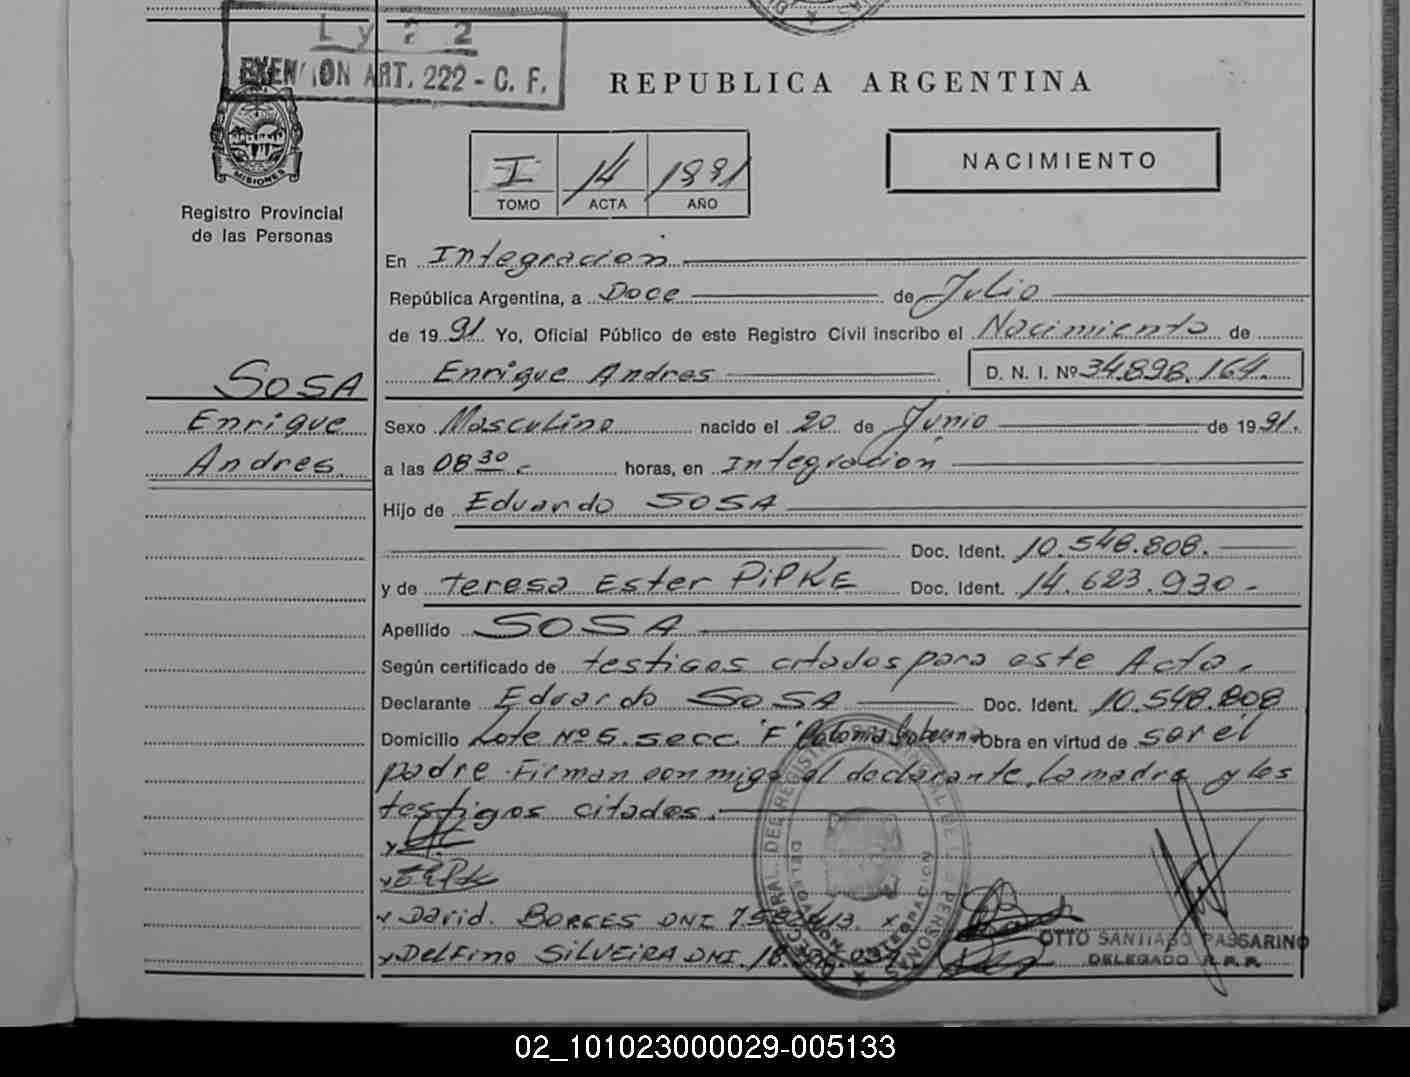 L y 2 2
EXENCION ART. 222 - C. F.
REPUBLICA ARGENTINA
MISIONES
Registro Provincial
de las Personas
I 14 1991
TOMO ACTA AÑO
NACIMIENTO
En Integracion
República Argentina, a Doce de Julio
de 1991 Yo, Oficial Público de este Registro Civil inscribo el Nacimiento de
Enrique Andres D. N. I. Nº 34.898.164.
SOSA
Enrique
Andres
Sexo Masculino nacido el 20 de Junio de 1991.
a las 08 30 horas, en Integracion
Hijo de Eduardo SOSA
Doc. Ident. 10.548.808.
y de Teresa Ester PiPKE Doc. Ident. 14.623.930-
Apellido SOSA
Según certificado de testigos citados para este Acta.
Declarante Eduardo SOSA Doc. Ident. 10.548.808
Domicilio Lote Nº 5. secc. "F" Colonia Obra en virtud de ser el
padre. Firman conmigo el declarante, la madre y los
testigos citados.
x David. BORGES DNI
x Delfino SiLVEiRA DNI.
OTTO SANTIAGO PASSARINO
DELEGADO R.P.P.
DELEGACION INTEGRACION
02_101023000029-005133